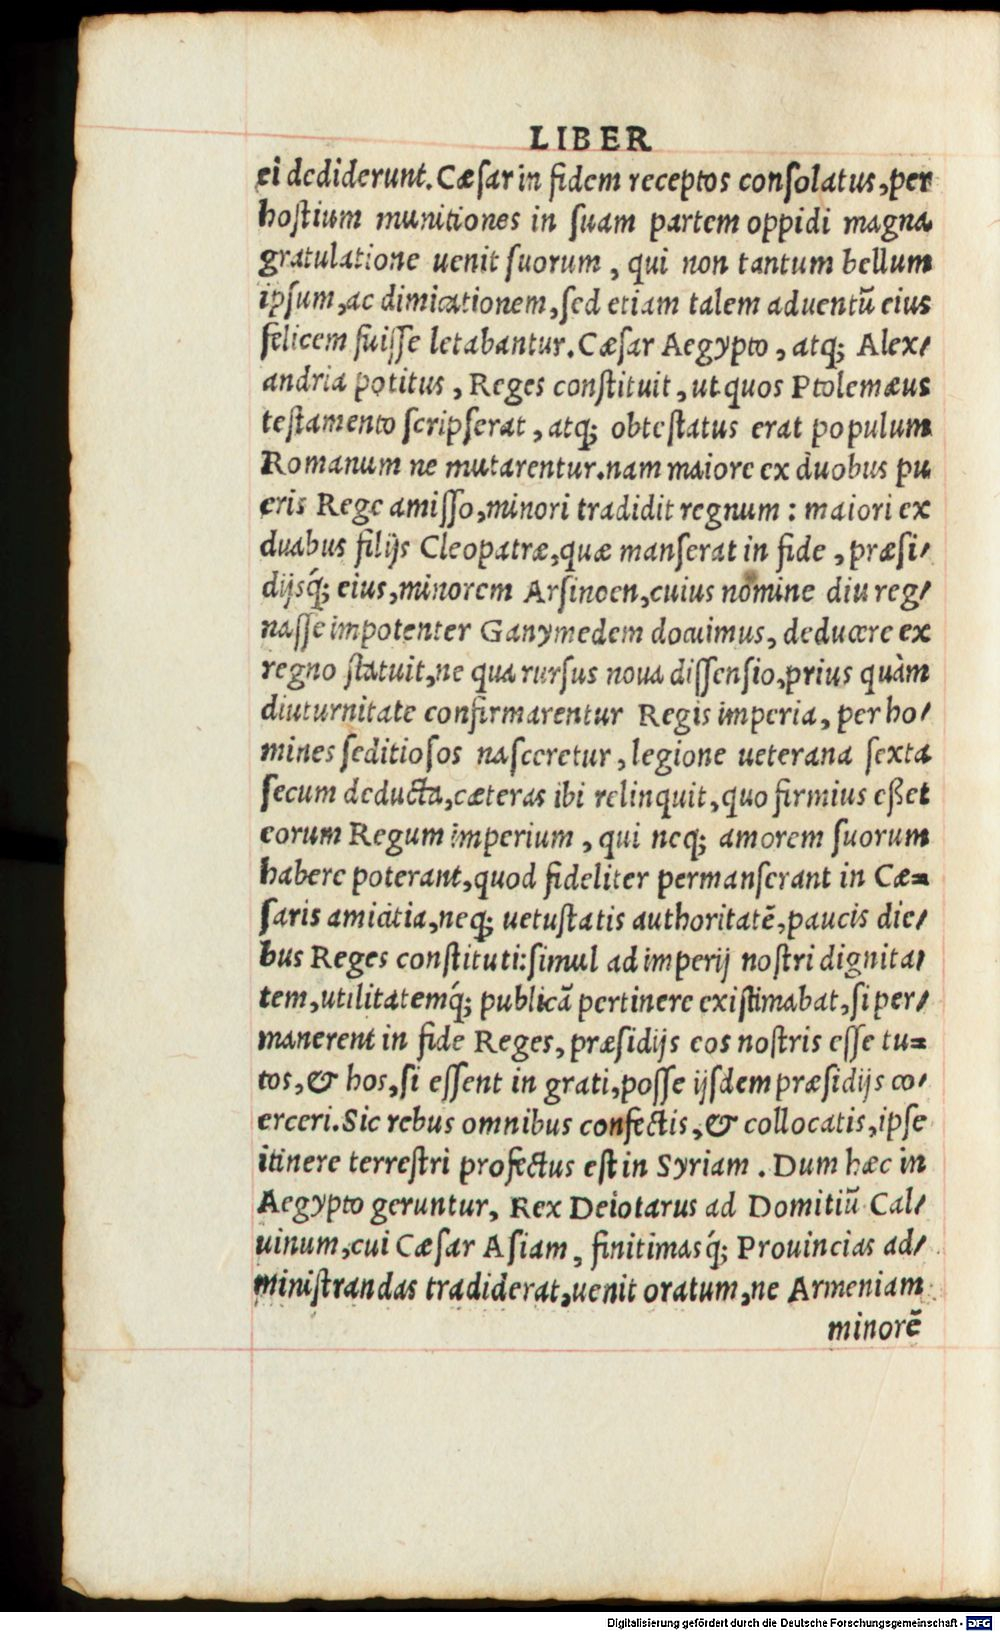 LIBER
ei dediderunt. Cæſar in fidem receptos conſolatus, per
hoſtium munitiones in ſuam partem oppidi magna
gratulatione uenit ſuorum, qui non tantum bellum
ipſum, ac dimicationem, ſed etiam talem aduentũ eius
felicem fuiſſe letabantur. Cæſar Aegypto, atq; Alex/
andria potitus, Reges conſtituit, ut quos Ptolemæus
teſtamento ſcripſerat, atq; obteſtatus erat populum
Romanum ne mutarentur. nam maiore ex duobus pu
eris Rege amiſſo, minori tradidit regnum: maiori ex
duabus filijs Cleopatræ, quæ manſerat in fide, præſi/
dijsq́; eius, minorem Arſinoen, cuius nomine diu reg/
naſſe impotenter Ganymedem docuimus, deducere ex
regno ſtatuit, ne qua rurſus noua diſſenſio, prius quàm
diuturnitate confirmarentur Regis imperia, per ho/
mines ſeditioſos naſceretur, legione ueterana ſexta
ſecum deducta, cæteras ibi relinquit, quo firmius eßet
eorum Regum imperium, qui neq; amorem ſuorum
habere poterant, quod fideliter permanſerant in Cæ=
ſaris amicitia, neq; uetuſtatis authoritatẽ, paucis die/
bus Reges conſtituti: ſimul ad imperij noſtri dignita/
tem, utilitatemq́; publicã pertinere exiſtimabat, ſi per/
manerent in fide Reges, præſidijs eos noſtris eſſe tu=
tos, & hos, ſi eſſent in grati, poſſe ijſdem præſidijs co/
erceri. Sic rebus omnibus confectis, & collocatis, ipſe
itinere terreſtri profectus eſt in Syriam. Dum hæc in
Aegypto geruntur, Rex Deiotarus ad Domitiũ Cal/
uinum, cui Cæſar Aſiam, finitimasq́; Prouincias ad/
miniſtrandas tradiderat, uenit oratum, ne Armeniam
minorẽ
Digitalisierung gefördert durch die Deutsche Forschungsgemeinschaft - DFG